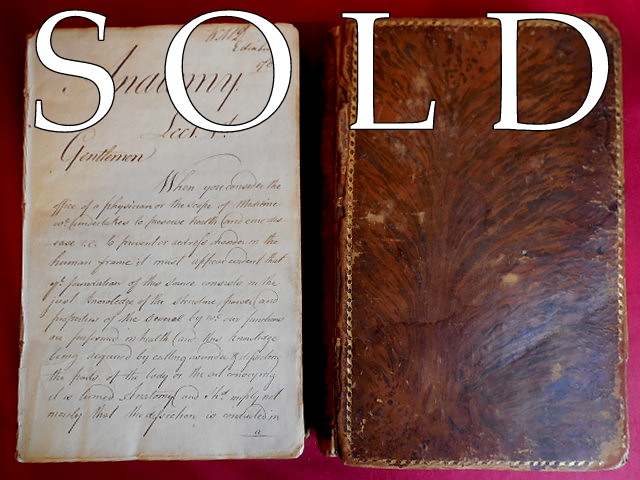 SOLD
Anatomy.
Lect. 1st.
Gentlemen
When you consider the
office of a physician or the scope of Medicine
wc. undertakes to preserve health and cure dis-
ease i.e. to prevent or redress disorder in the
human frame it must appear evident that
ye. foundation of this science consists in the
just knowledge of the structure, powers and
properties of the several by wc. our functions
are performed in health and this knowledge
being acquired by cutting asunder & dissecting
the parts of the body or the art conveying
it is termed Anatomy and tho' imply not
merely that the dissection is conducted in
a